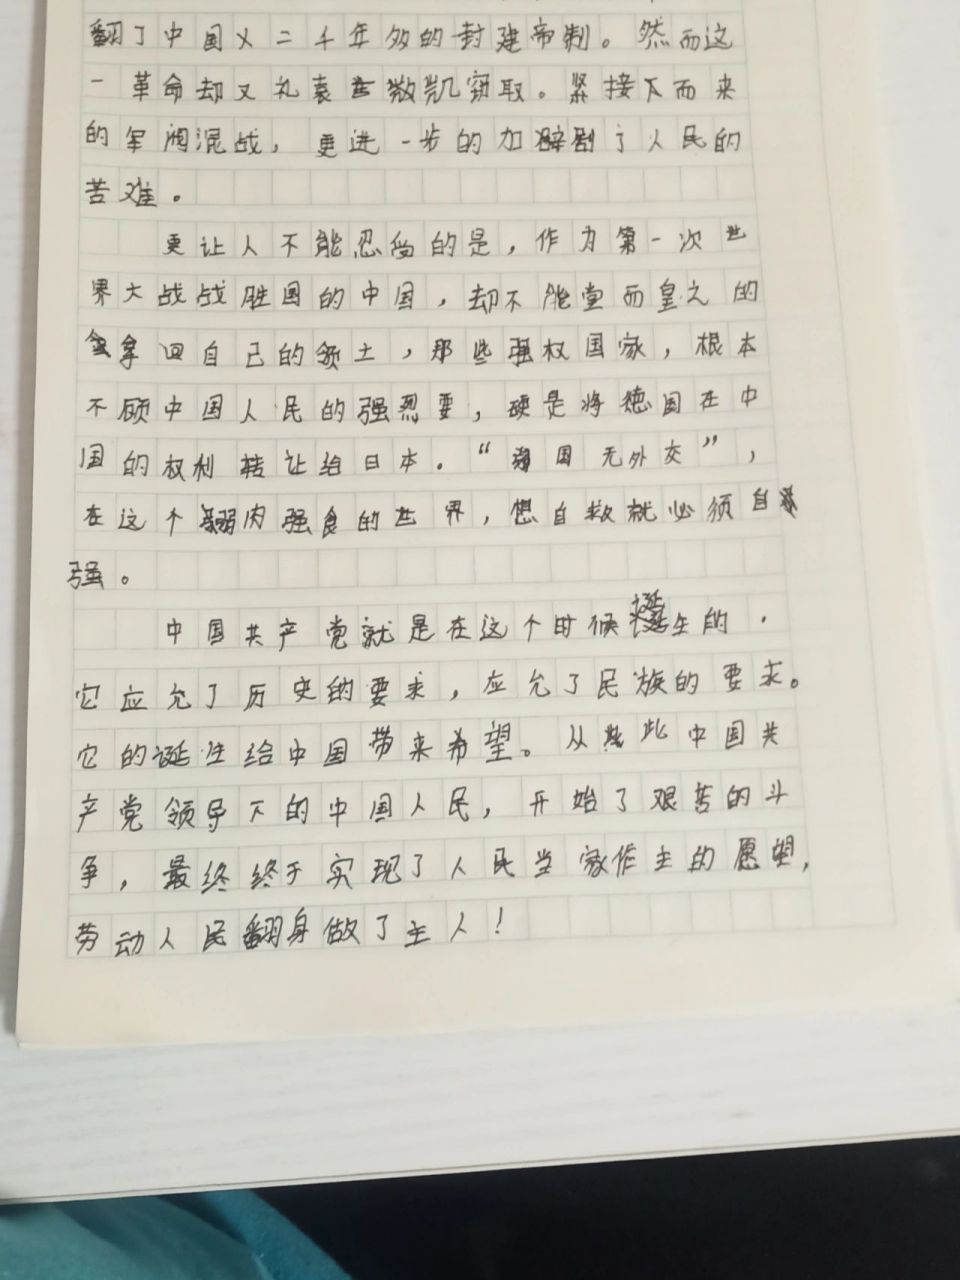 翻了中国乂二千年多的封建帝制。然而这
一革命却又礼袁世凯窃取。紧接下而来
的军阀混战，更进一步的加剧了人民的
苦难。
更让人不能忍受的是，作为第一次世
界大战战胜国的中国，却不能堂而皇之的
拿回自己的领土，那些强权国家，根本
不顾中国人民的强烈要，硬是将德国在中
国的权利转让给日本。“弱国无外交”，
在这个弱肉强食的世界，想自救就必须自
强。
中国共产党就是在这个时候诞生的．
它应允了历史的要求，应允了民族的要求。
它的诞生给中国带来希望。从此中国共
产党领导下的中国人民，开始了艰苦的斗
争，最终终于实现了人民当家作主的愿望，
劳动人民翻身做了主人！